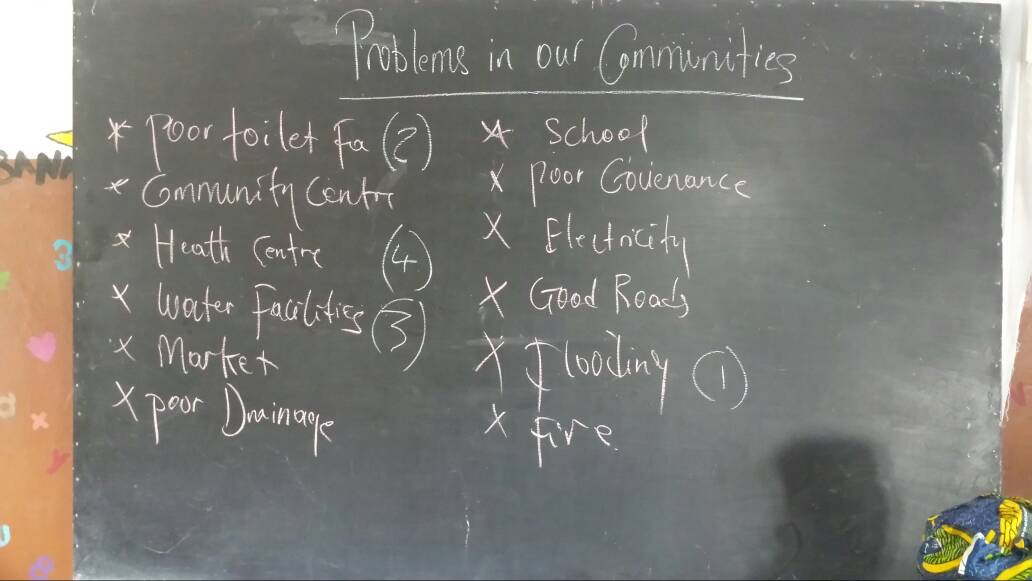 Problems in our Communities
* Poor toilet Fa (2)
* Community Centre
* Heath Centre (4)
x Water Facilities (3)
x Market
x poor Drainage
* School
x poor Govenance
x Electricity
x Good Roads
x Flooding (1)
x fire.
BANA
3